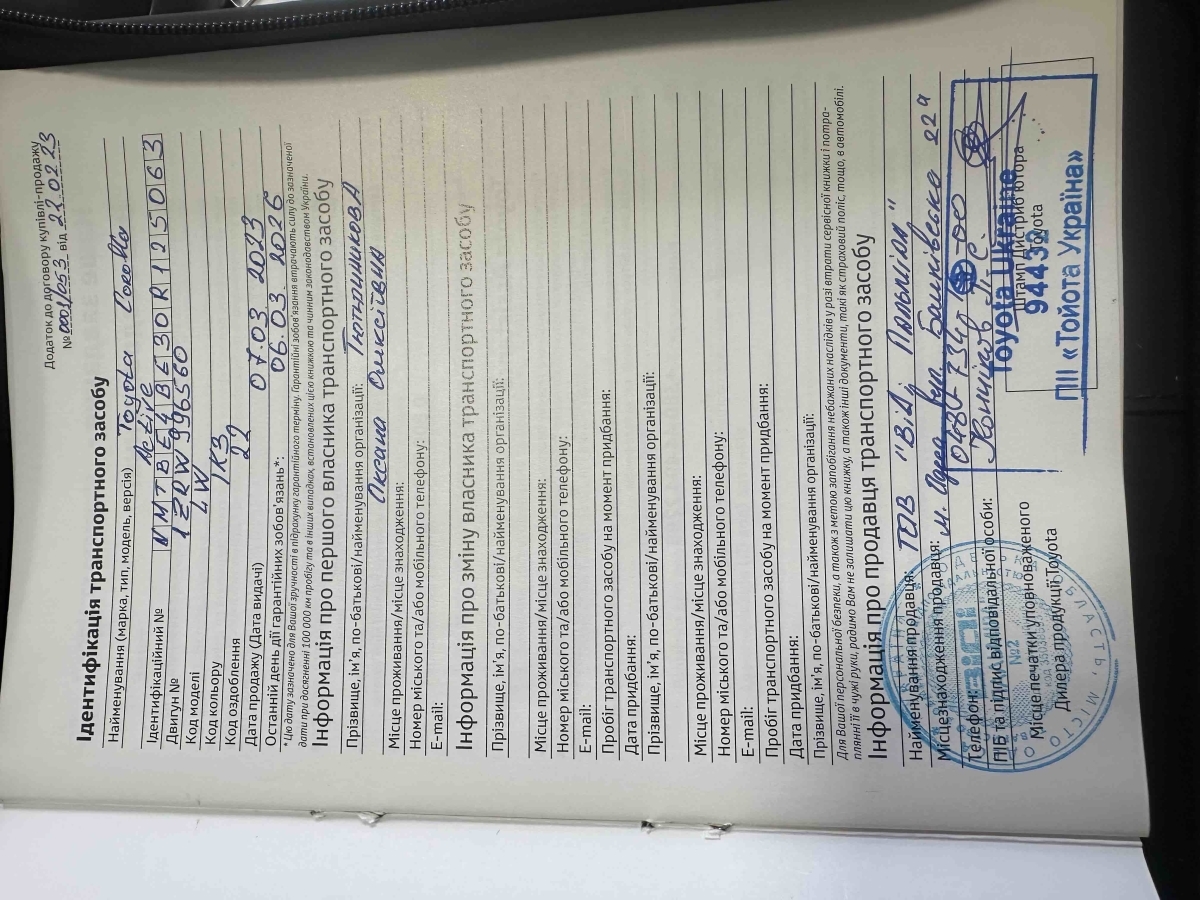 Додаток до договору купівлі-продажу
№ 0001/053 від 22.02.23
Ідентифікація транспортного засобу
Найменування (марка, тип, модель, версія) Toyota Corolla
Active
Ідентифікаційний № NMTBE4BE30R125063
Двигун № 1ZRW996560
Код моделі LW
Код кольору 1K3
Код оздоблення 22
Дата продажу (Дата видачі) 07.03 2023
Останній день дії гарантійних зобов'язань*: 06.03. 2026
* Цю дату зазначено для Вашої зручності в підрахунку гарантійного терміну. Гарантійні зобов'язання втрачають силу до зазначеної
дати при досягненні 100 000 км пробігу та в інших випадках, встановлених цією книжкою та чинним законодавством України.
Інформація про першого власника транспортного засобу
Прізвище, ім'я, по-батькові/найменування організації:
Оксана Олексіївна
Місце проживання/місце знаходження:
Номер міського та/або мобільного телефону:
E-mail:
Інформація про зміну власника транспортного засобу
Прізвище, ім'я, по-батькові/найменування організації:
Місце проживання/місце знаходження:
Номер міського та/або мобільного телефону:
E-mail:
Пробіг транспортного засобу на момент придбання:
Дата придбання:
Прізвище, ім'я, по-батькові/найменування організації:
Місце проживання/місце знаходження:
Номер міського та/або мобільного телефону:
E-mail:
Пробіг транспортного засобу на момент придбання:
Дата придбання:
Прізвище, ім'я, по-батькові/найменування організації:
Для Вашої персональної безпеки, а також з метою запобігання небажаних наслідків у разі втрати сервісної книжки і потра-
плянні її в чужі руки, радимо Вам не залишати цю книжку, а також інші документи, такі як страховий поліс, тощо, в автомобілі.
Інформація про продавця транспортного засобу
Найменування продавця: ТОВ "ВіДі Пальміра"
Місцезнаходження продавця: м. Одеса вул. Балківська 22а
Телефон: 0480-734
ПІБ та підпис відповідальної особи:
Місце печатки уповноваженого
Дилера продукції Toyota
№2
Штамп Дистриб'ютора
Toyota
Toyota Ukraine
94432
ПІІ «Тойота Україна»